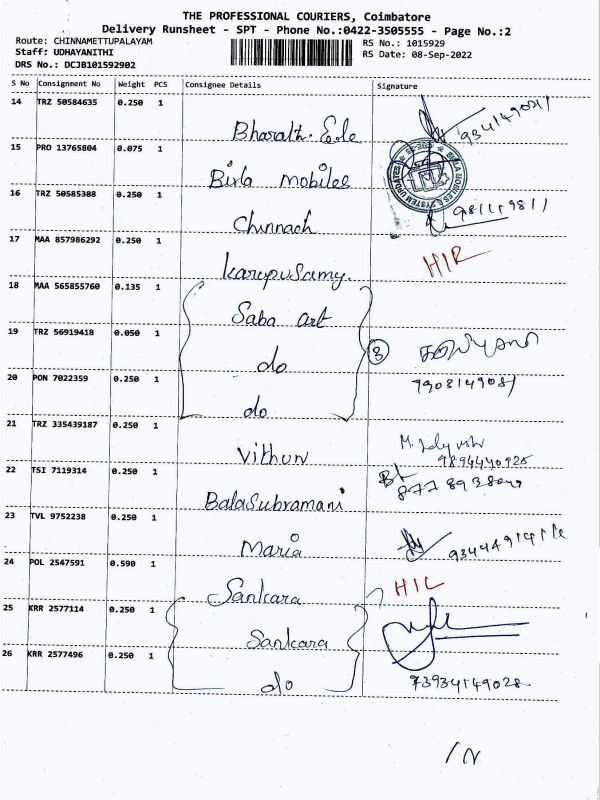 THE PROFESSIONAL COURIERS, Coimbatore
Delivery Runsheet - SPT - Phone No.:0422-3505555 - Page No.:2
Route: CHINNAMETTUPALAYAM
Staff: UDHAYANITHI
DRS No.: DCJB101592902
RS No.: 1015929
RS Date: 08-Sep-2022
S No Consignment No Weight PCS Consignee Details Signature
14 TRZ 50584635 0.250 1 Bharath. Ele
15 PRO 13765804 0.075 1 Birla mobiles
16 TRZ 50585388 0.250 1 Chinnach
17 MAA 857986292 0.250 1 Karupusamy. HIR
18 MAA 565855760 0.135 1 Saba art
19 TRZ 56919418 0.050 1 do 3
20 PON 7022359 0.250 1 do
21 TRZ 335439187 0.250 1 Vithun
22 TSI 7119314 0.250 1 BalaSubramani
23 TVL 9752238 0.250 1 Maria
24 POL 2547591 0.590 1 Sankara HIL
25 KRR 2577114 0.250 1 Sankara
26 KRR 2577496 0.250 1 do